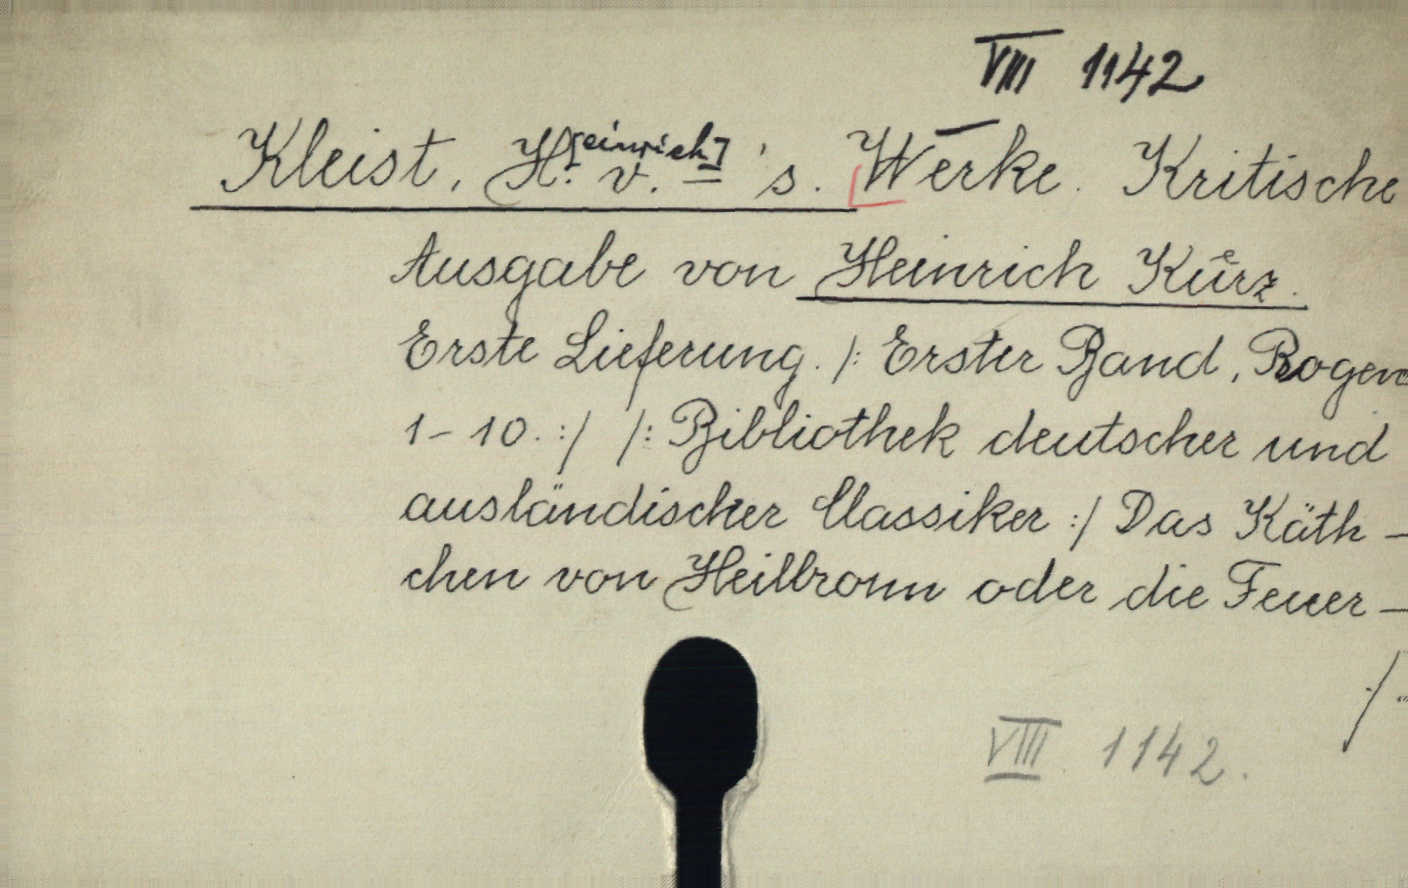 VIII 1142
Kleist, H[einrich]. v. – 's. Werke. Kritische
Ausgabe von Heinrich Kurz.
Erste Lieferung. /: Erster Band, Bogen
1-10. :/ /: Bibliothek deutscher und
ausländischer Classiker :/ Das Käth-
chen von Heilbronn oder die Feuer-
./.
VIII 1142.